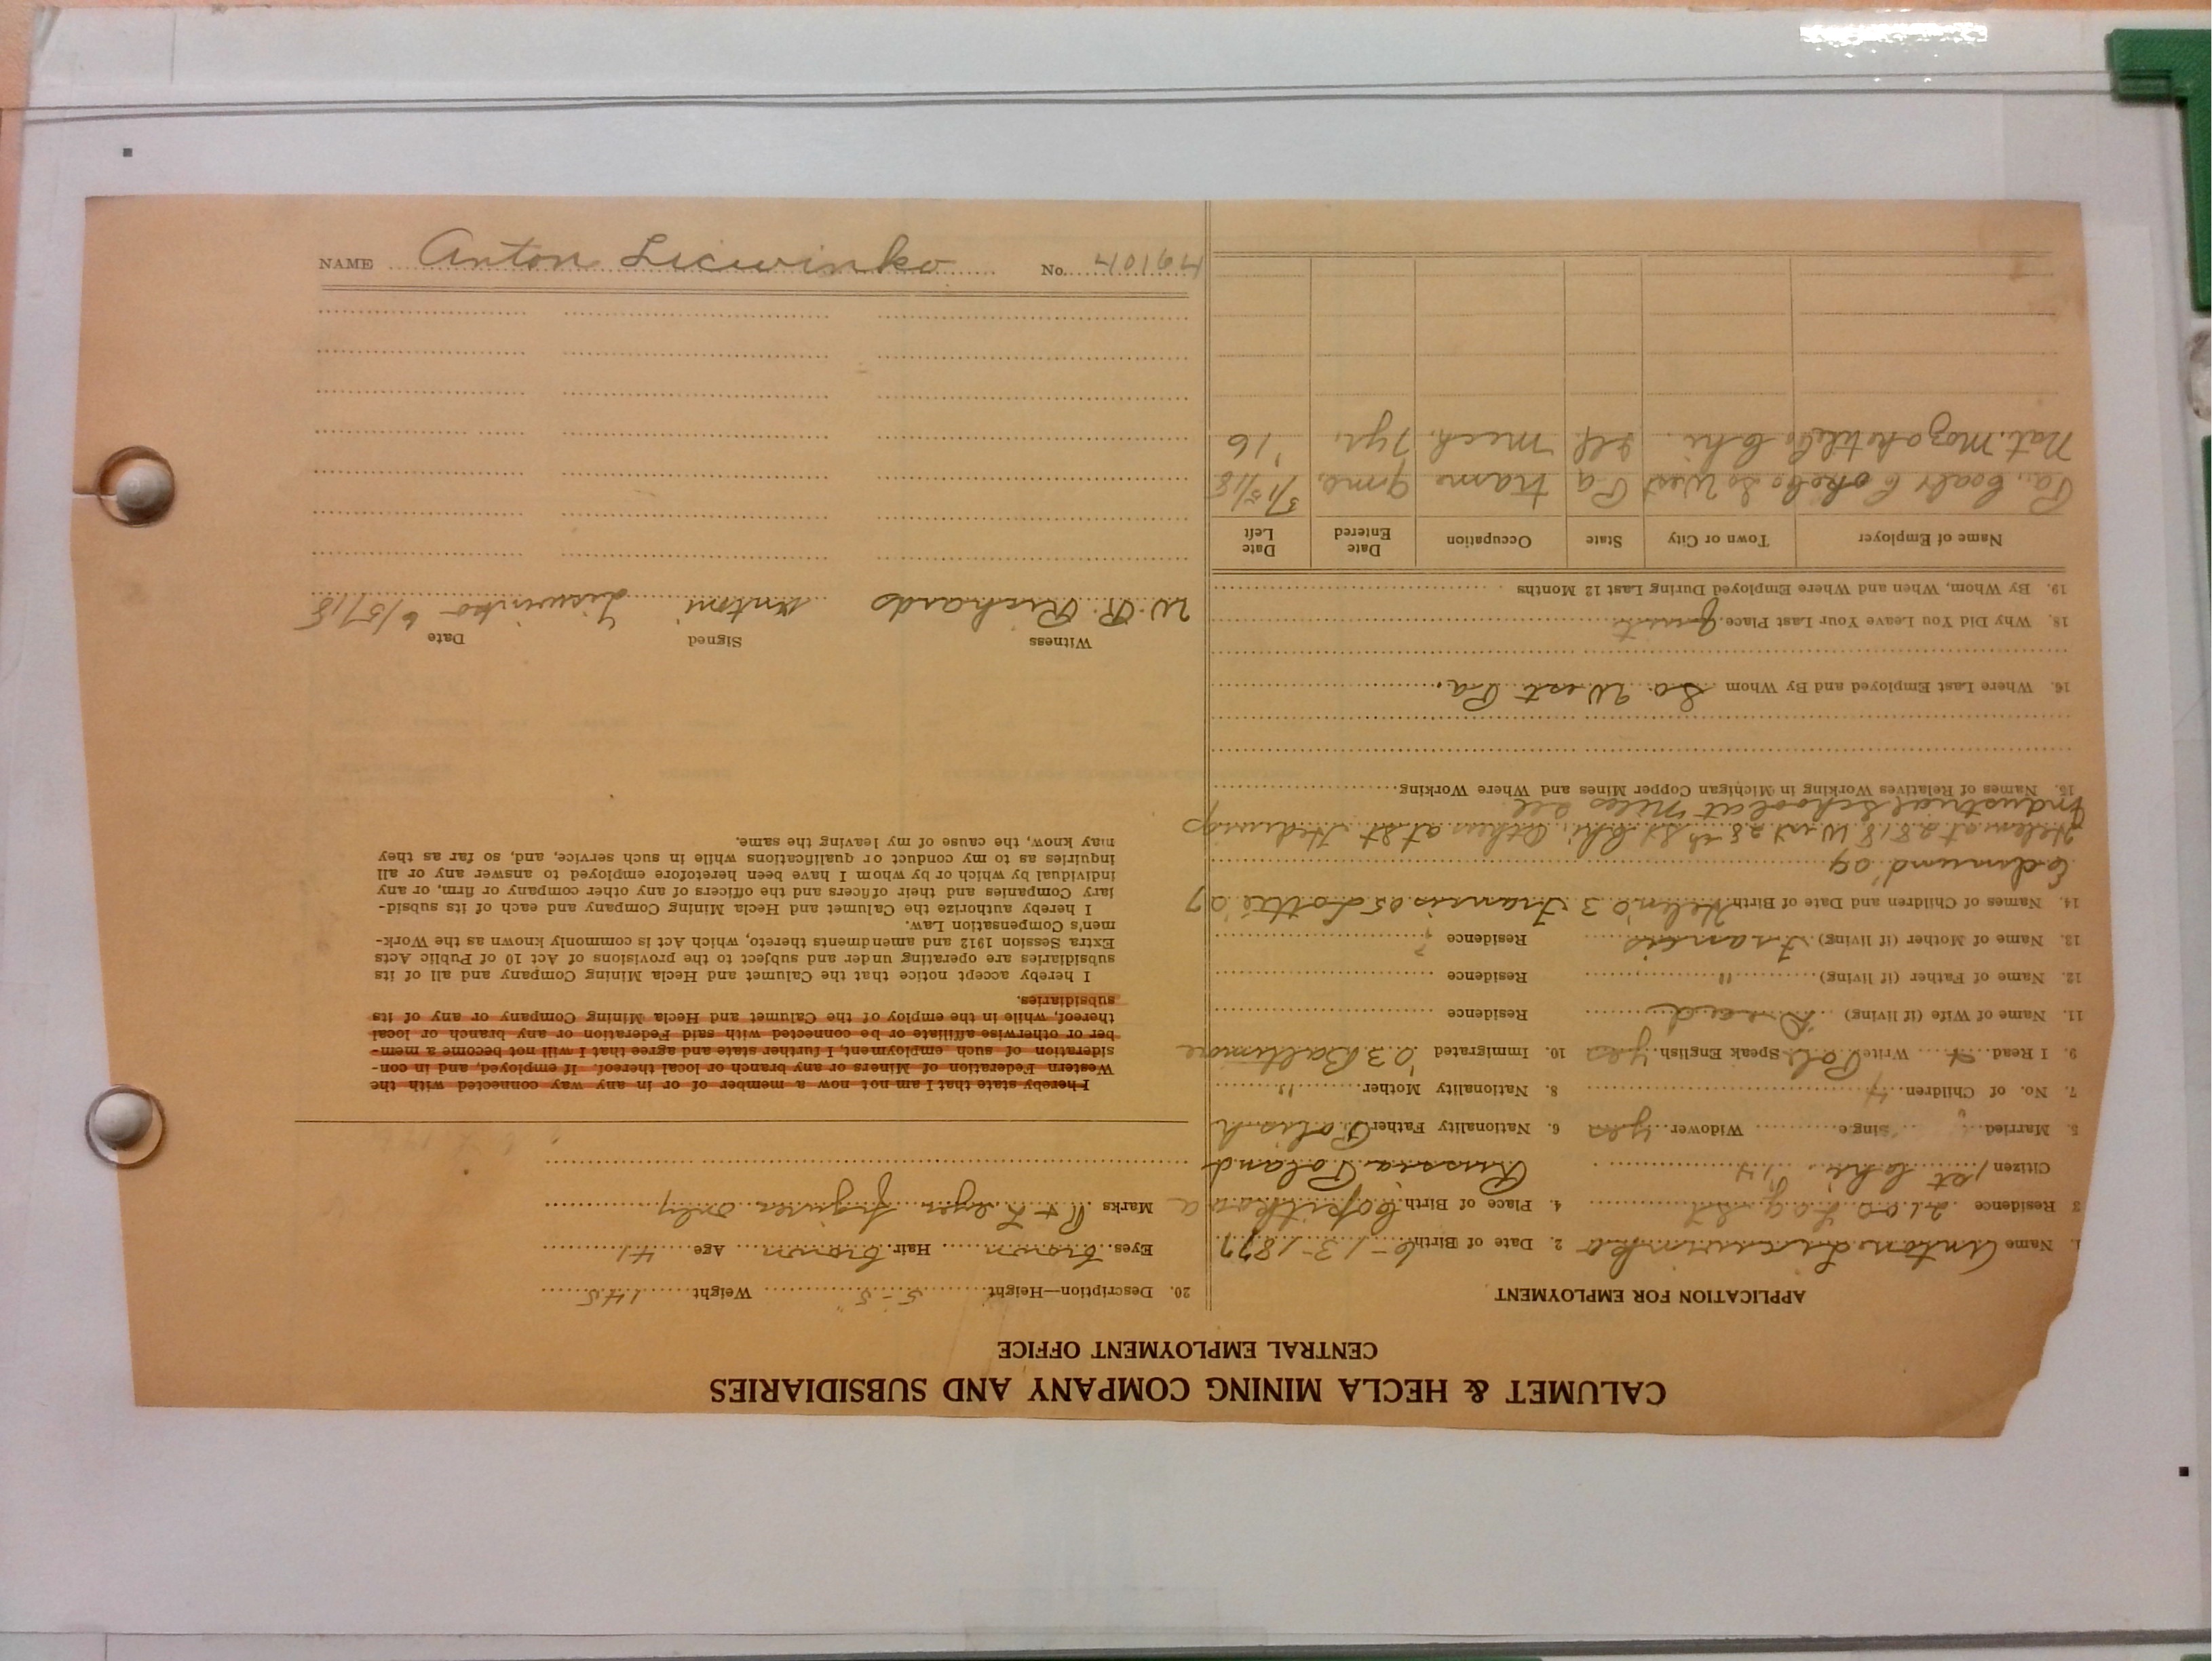 CALUMET & HECLA MINING COMPANY AND SUBSIDIARIES
CENTRAL EMPLOYMENT OFFICE
APPLICATION FOR EMPLOYMENT
1. Name Anton Liciwinko 2. Date of Birth 6-13-1877
3 Residence 2100 Log St 4. Place of Birth
Citizen 1st Chi. '14 Russia Poland
5. Married Single Widower yes 6. Nationality Father Polish
7. No. of Children 4 8. Nationality Mother "
9. I Read + Write Pol. Speak English yes 10. Immigrated '03 Baltimore
11. Name of Wife (if living) Dead Residence
12. Name of Father (if living) " Residence
13. Name of Mother (if living) Francis Residence ?
14. Names of Children and Date of Birth Helen 03 Francis 05 Lottie 07
Edmund 09
Helen at 2818 West 28th St Chi, Others at St Hedwigs
Industrial School at Niles Ill.
15. Names of Relatives Working in Michigan Copper Mines and Where Working
16. Where Last Employed and By Whom So West Pa.
18. Why Did You Leave Your Last Place quit
19. By Whom, When and Where Employed During Last 12 Months
Name of Employer Town or City State Occupation Date Entered Date Left
Pa. Coal & Coke Co So West Pa tram 9 mo. 3/15/18
Nat. Tile Co Chi. Ill mech. 7 yr. '16
20. Description—Height 5-5" Weight 145
Eyes brown Hair brown Age 41
Marks only
I hereby state that I am not now a member of or in any way connected with the
Western Federation of Miners or any branch or local thereof. If employed, and in con-
sideration of such employment, I further state and agree that I will not become a mem-
ber or otherwise affiliate or be connected with said Federation or any branch or local
thereof, while in the employ of the Calumet and Hecla Mining Company or any of its
subsidiaries.
I hereby accept notice that the Calumet and Hecla Mining Company and all of its
subsidiaries are operating under and subject to the provisions of Act 10 of Public Acts
Extra Session 1912 and amendments thereto, which Act is commonly known as the Work-
men's Compensation Law.
I hereby authorize the Calumet and Hecla Mining Company and each of its subsid-
iary Companies and their officers and the officers of any other company or firm, or any
individual by which or by whom I have been heretofore employed to answer any or all
inquiries as to my conduct or qualifications while in such service, and, so far as they
may know, the cause of my leaving the same.
Witness Signed Date
W. R. Richards Antoni Liswinko 6/5/18
NAME Anton Liciwinko No.